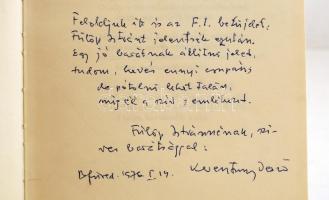 Feloldjuk itt is az F. I. betűjelet:
Fülöp Istvánt jelentsék ezután.
Egy jó barátnak állítni jelet,
tudom, kevés ennyi csupán,
de pótolni lehet talán,
míg él a szív s emlékezet.
Fülöp Istvánnénak, szí-
ves barátsággal:
Bfüred. 1976. I. 14. Keresztury Dezső